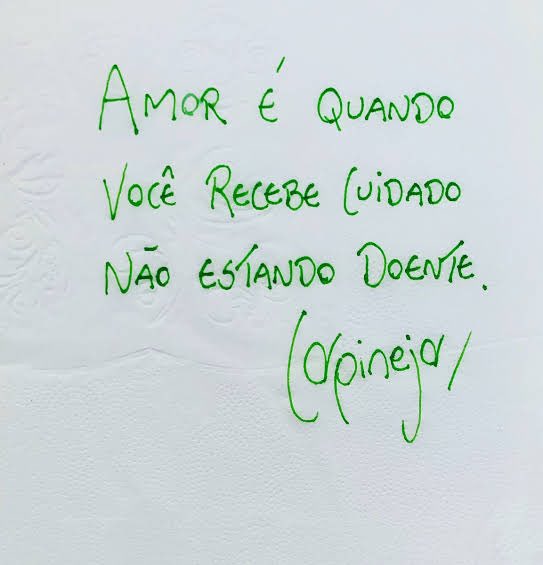 AMOR É QUANDO
VOCÊ RECEBE CUIDADO
NÃO ESTANDO DOENTE.
Carpinejar